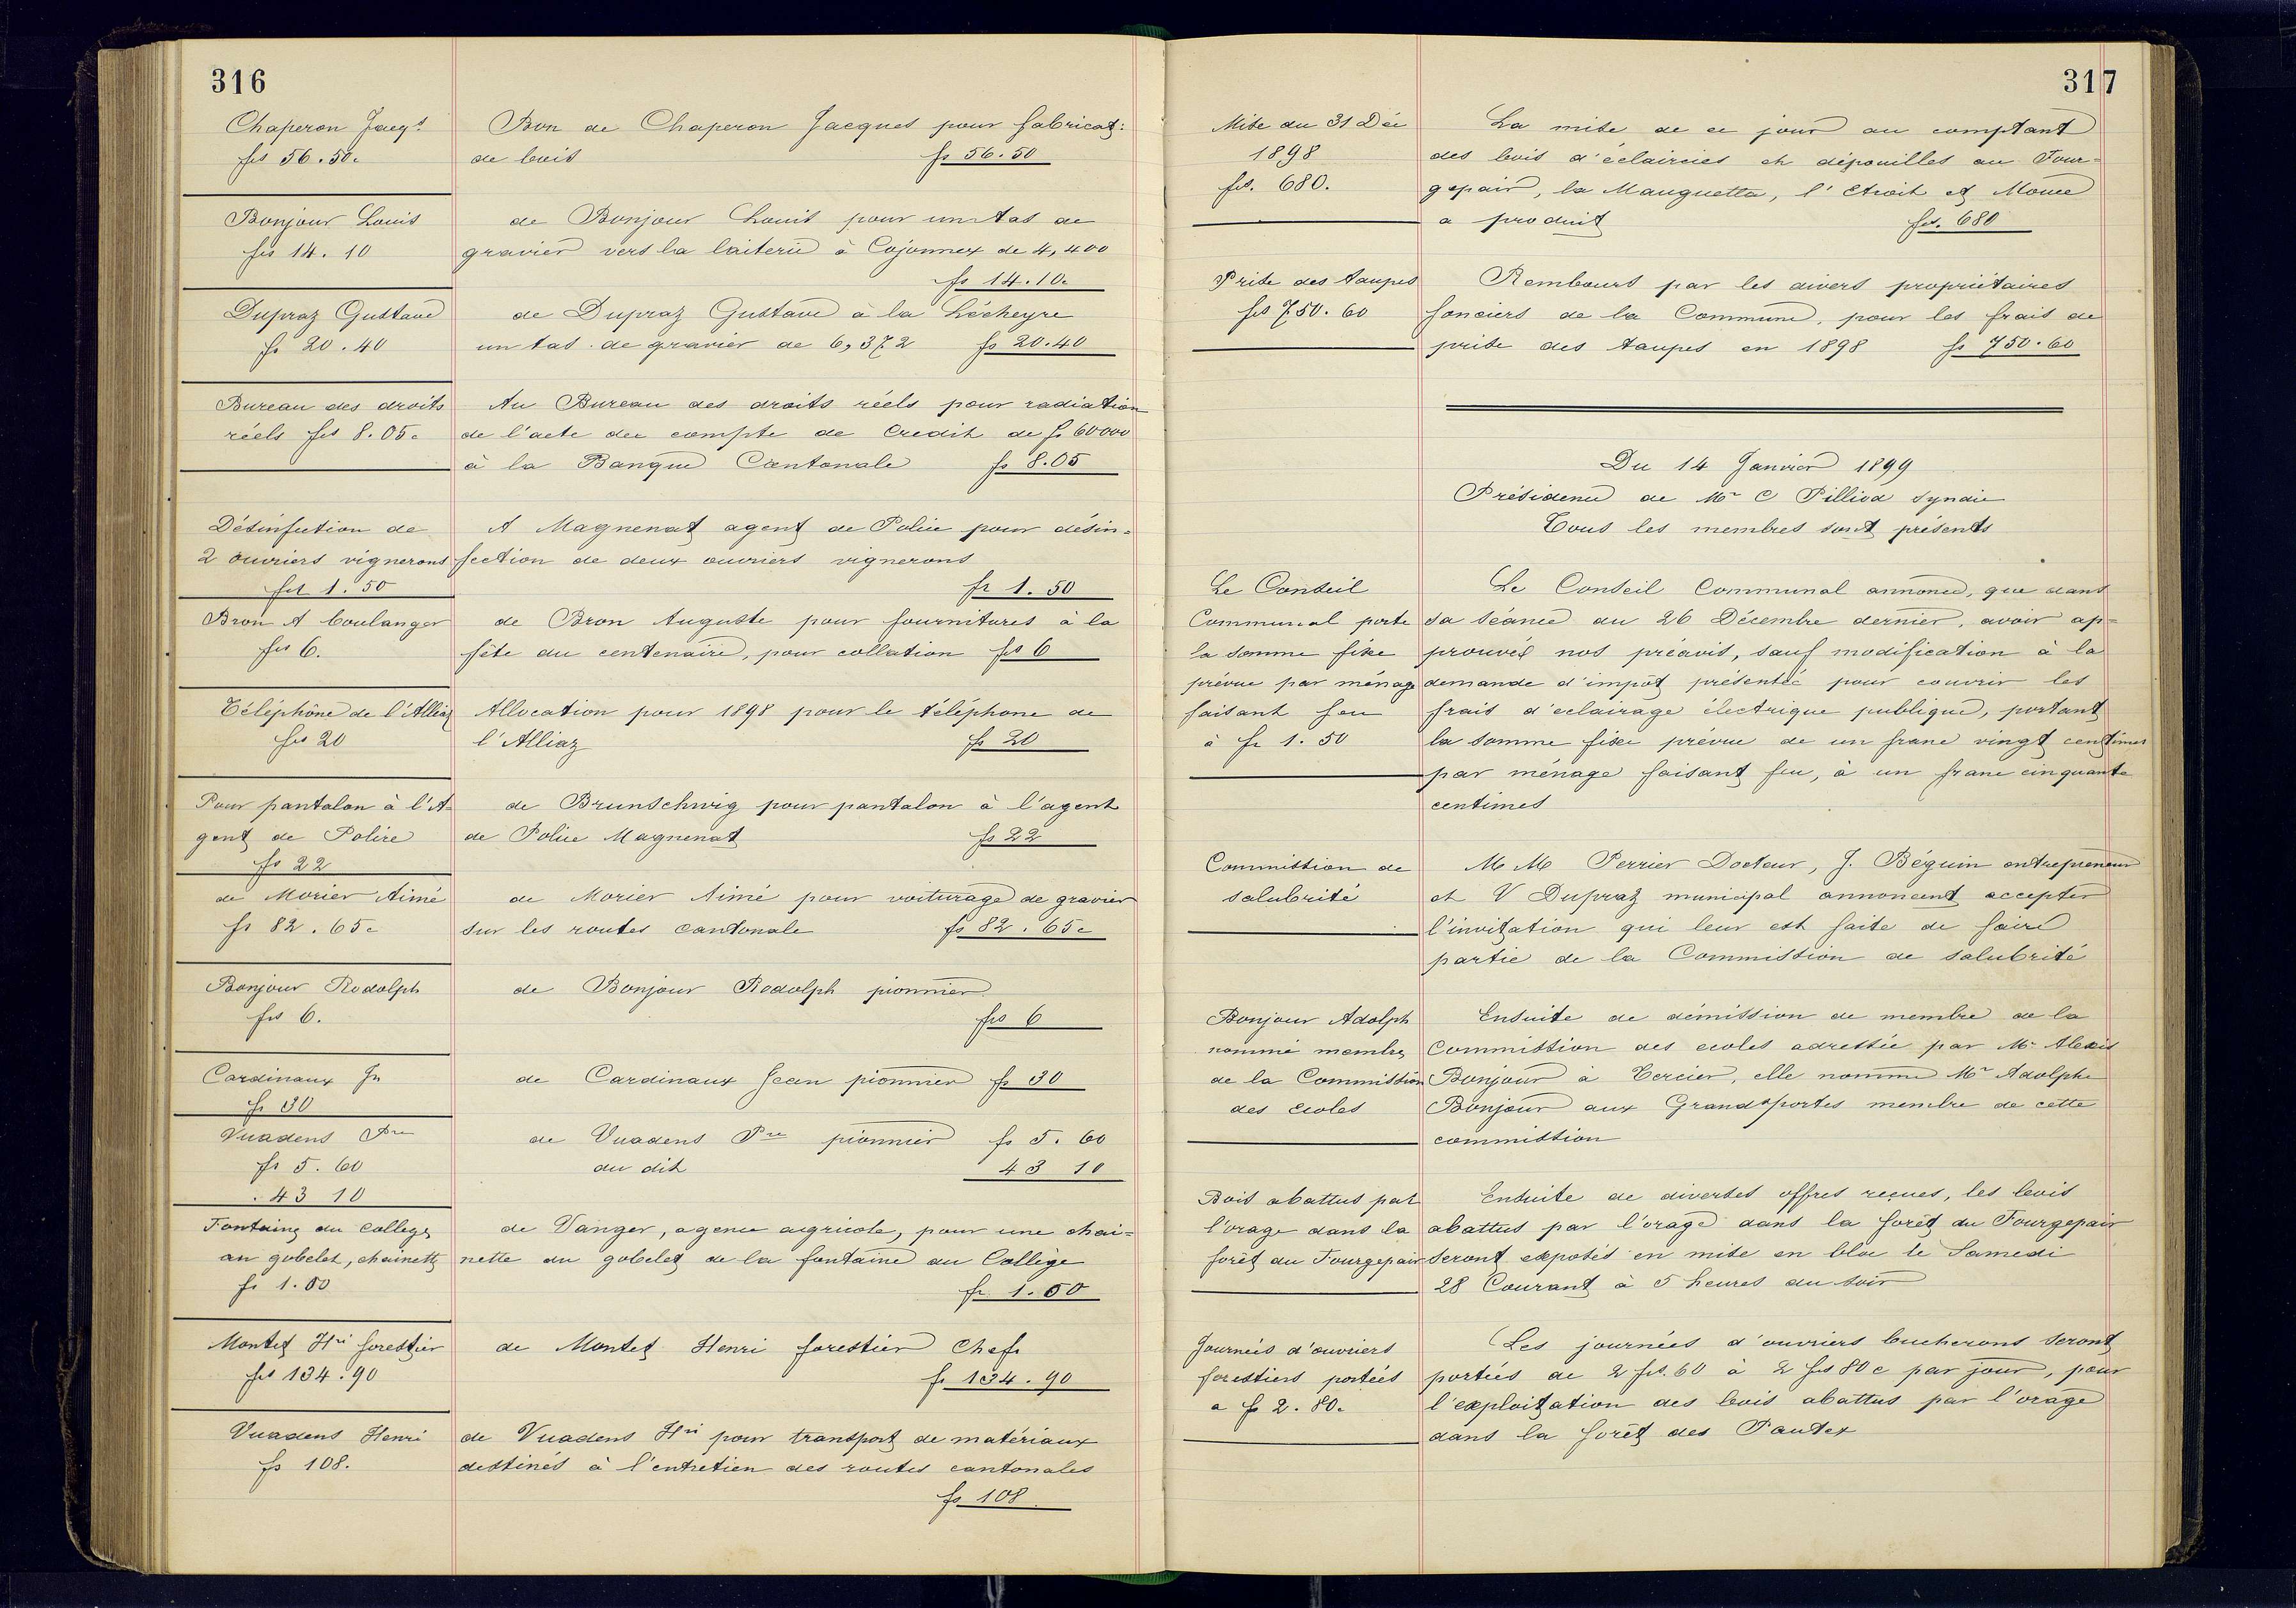 316
Chaperon Jacqs
frs 56.50c
Bon de Chaperon Jacques pour fabricat:
de bois fr 56.50
Bonjour Louis
frs 14.10
de Bonjour Louis pour un tas de
gravier vers la laiterie à Cojonnex de 4,400
fr 14.10c
Dupraz Gustave
fr 20.40
de Dupraz Gustave à la Lécheyre
un tas de gravier de 6,372 fr 20.40
Bureau des droits
réels frs 8.05c
Au Bureau des droits réels pour radiation
de l'acte de compte de Credit de fr 60000
à la Banque Cantonale fr 8.05
Désinfection de
2 ouvriers vignerons
frs 1.50
A Magnenat agent de Police pour désin=
fection de deux ouvriers vignerons
fr 1.50
Bron A boulanger
frs 6.
de Bron Auguste pour fournitures à la
fête du centenaire, pour collation frs 6
Téléphone de l'Alliaz
frs 20
Allocation pour 1898 pour le téléphone de
l'Alliaz fr 20
Pour pantalon à l'A=
gent de Police
fr 22
de Brunschwig pour pantalon à l'agent
de Police Magnenat fr 22
de Morier Aimé
fr 82.65c
de Morier Aimé pour voiturage de gravier
sur les routes cantonale fr 82.65c
Bonjour Rodolph
frs 6.
de Bonjour Rodolph pionnier
frs 6
Cardinaux Jn
fr 30
de Cardinaux Jean pionnier fr 30
Vuadens Pre
fr 5.60
. 43 10
de Vuadens Pre pionnier fr 5.60
du dit 43 10
Fontaine du College
au gobelet, chainette
fr 1.50
de Vanger, agence agricole, pour une chai=
nette du gobelet de la fontaine du Collège
fr. 1.50
Montet Hri forestier
frs 134.90
de Montet Henri forestier Chef
fr 134.90
Vuadens Henri
fr 108.
de Vuadens Hri pour transport de matériaux
destinés à l'entretien des routes cantonales
fr 108.
317
Mise du 31 Déc
1898
frs. 680.
La mise de ce jour au comptant
des bois d'éclaircies et dépouilles au Four=
gepair, la Mauguetta, l'Etroit et
a produit frs. 680
Prise des taupes
frs 750.60
Rembours par les divers propriétaires
fonciers de la Commune, pour les frais de
prise des taupes en 1898 fr 750.60
Du 14 Janvier 1899
Présidence de Mr C Pilliod syndic
Tous les membres sont présents
Le Conseil
Communal porte
la somme fixe
prévue par ménage
faisant feu
à fr 1.50
Le Conseil Communal annonce, que dans
sa séance du 26 Décembre dernier, avoir ap=
prouvés nos préavis, sauf modification à la
demande d'impôt présentée pour couvrir les
frais d'eclairage électrique publique, portant
la somme fixe prévue de un franc vingt centimes
par ménage faisant feu, à un franc cinquante
centimes
Commission de
salubrité
M M Perrier Docteur, J. Béguin entrepreneur
et V Dupraz municipal annoncent accepter
l'invitation qui leur est faite de faire
partie de la Commission de salubrité
Bonjour Adolph
nommé membre
de la Commission
des écoles
Ensuite de démission de membre de la
Commission des ecoles adressée par Mr Alexis
Bonjour à Tercier, elle nomme Mr Adolphe
Bonjour aux Grandsportes membre de cette
commission
Bois abattus par
l'orage dans la
forêt du Fourgepair
Ensuite de diverses offres reçues, les bois
abattus par l'orage dans la forêt du Fourgepair
seront exposés en mise en bloc le Samedi
28 Courant à 5 heures du soir
Journeés d'ouvriers
forestiers porteés
a fr 2.80c
Les journées d'ouvriers bucherons seront
portées de 2 frs.60 à 2 frs 80 c par jour, pour
l'exploitation des bois abattus par l'orage
dans la forêt des Pautex